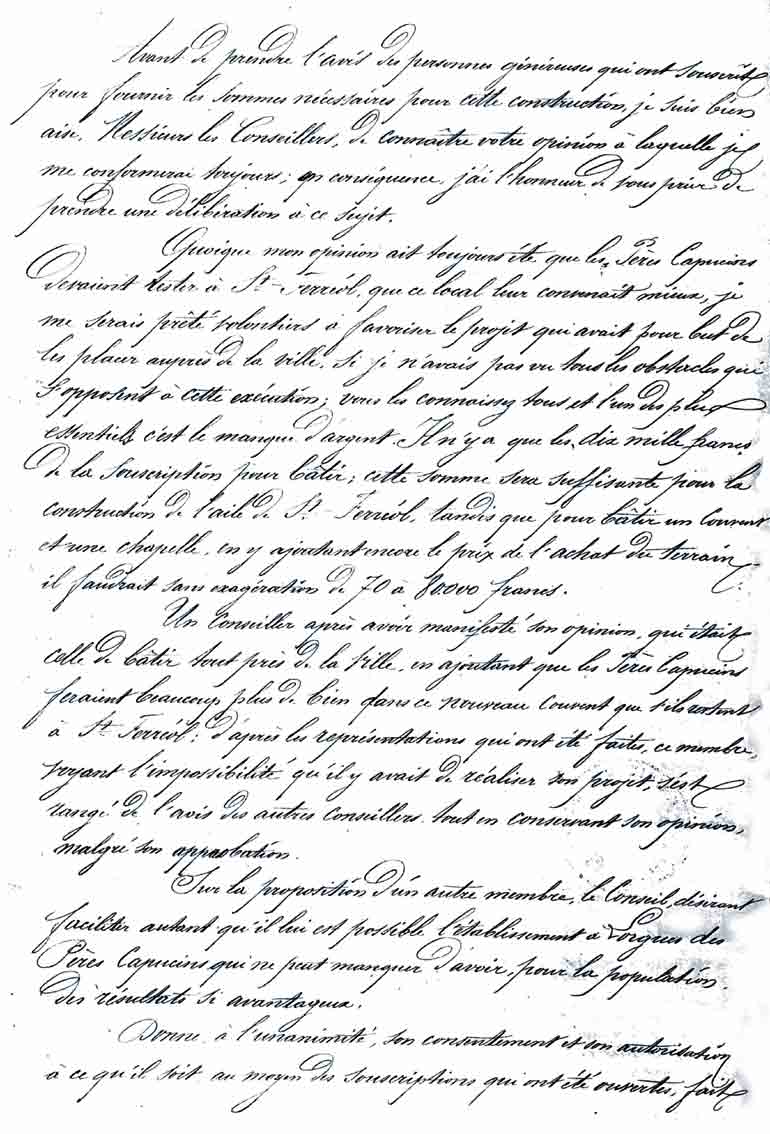 Avant de prendre l'avis des personnes généreuses qui ont souscrit
pour fournir les sommes nécessaires pour cette construction, je suis bien
aise, Messieurs les Conseillers, de connaître votre opinion à laquelle je
me conformerai toujours; en conséquence, j'ai l'honneur de vous prier de
prendre une délibération à ce sujet.
Quoique mon opinion ait toujours été que les Pères Capucins
devaient rester à St Ferréol, que ce local leur convenait mieux, je
me serais prêté volontiers à favoriser le projet qui avait pour but de
les placer auprès de la ville, si je n'avais pas vu tous les obstacles qui
s'opposent à cette exécution; vous les connaissez tous et l'un des plus
essentiels c'est le manque d'argent. Il n'y a que les dix mille francs
de la souscription pour bâtir; cette somme sera suffisante pour la
construction de l'aile de St Ferréol, tandis que pour bâtir un Couvent
et une chapelle, en y ajoutant encore le prix de l'achat du terrain
il faudrait sans exagération de 70 à 80.000 francs.
Un Conseiller après avoir manifesté son opinion, qui était
celle de bâtir tout près de la ville, en ajoutant que les Pères Capucins
feraient beaucoup plus de bien dans ce nouveau couvent que s'ils restent
à St Ferréol; d'après les représentations qui ont été faites, ce membre,
voyant l'impossibilité qu'il y avait de réaliser son projet, s'est
rangé de l'avis des autres conseillers tout en conservant son opinion,
malgré son approbation.
Sur la proposition d'un autre membre, le Conseil, désirant
faciliter autant qu'il lui est possible l'établissement à Lorgues des
Pères Capucins qui ne peut manquer d'avoir, pour la population
des résultats si avantageux.
Donne à l'unanimité, son consentement et son autorisation
à ce qu'il soit au moyen des souscriptions qui ont été ouvertes, fait